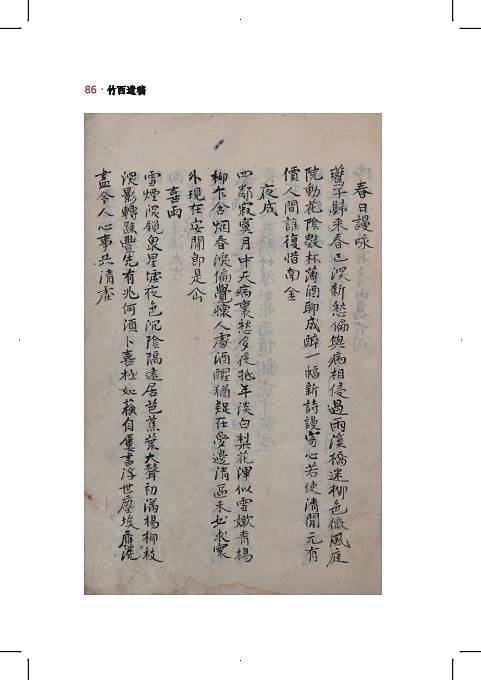 86 · 竹西遺稿
春日謾咏
鷰子歸来春已深新愁偏與病相侵過雨溪橋迷柳色微風庭
院動花陰數杯薄酒聊成醉一幅新詩謾寄心若使清閒元有
價人間誰復惜南金
夜成
四鄰寂寞月中天病裏愁多夜抵年淡白梨花渾似雪嫩青楊
柳乍含烟春深偏覺懷人處酒醒猶疑在邊清區未必求
外現在安閒即是仙
喜雨
雲煙淡鎖泉星墟夜色沉陰隔遠居芭蕉葉大聲初滿楊柳枝
深影轉踈豐先有兆何須卜喜極如蘓自屢書浮世塵埃痲洗
盡令人心事共清虛